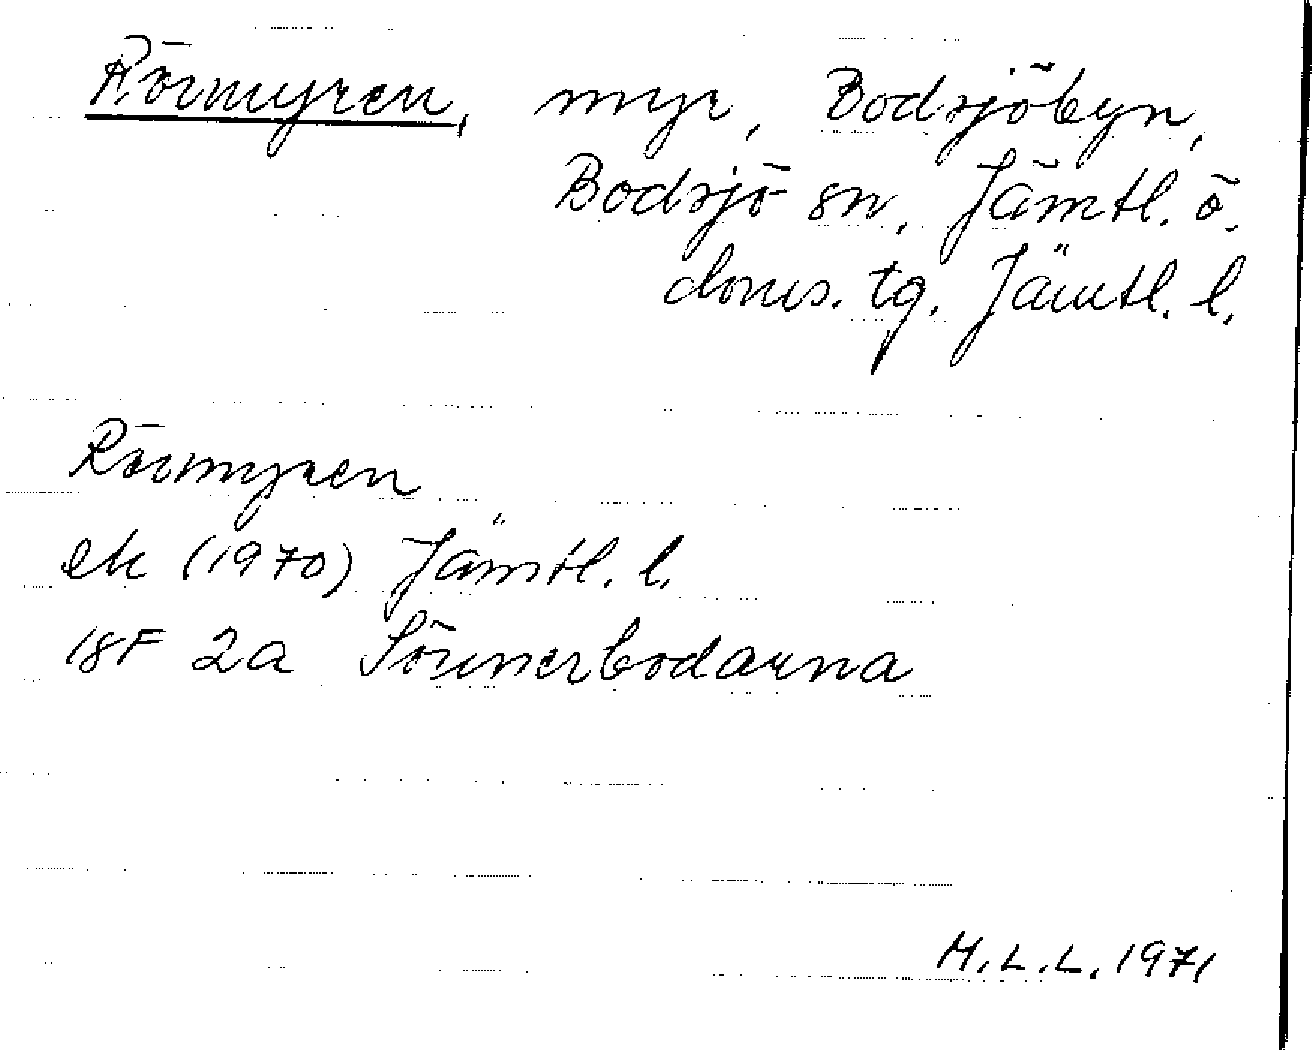 Rörmyren, myr, Bodsjöbyn,
Bodsjö sn, Jämtl. ö.
doms. tg. Jämtl. l.
Rörmyren
ek (1970) Jämtl. l.
18F 2a Sörnerbodarna
M.L.L. 1971